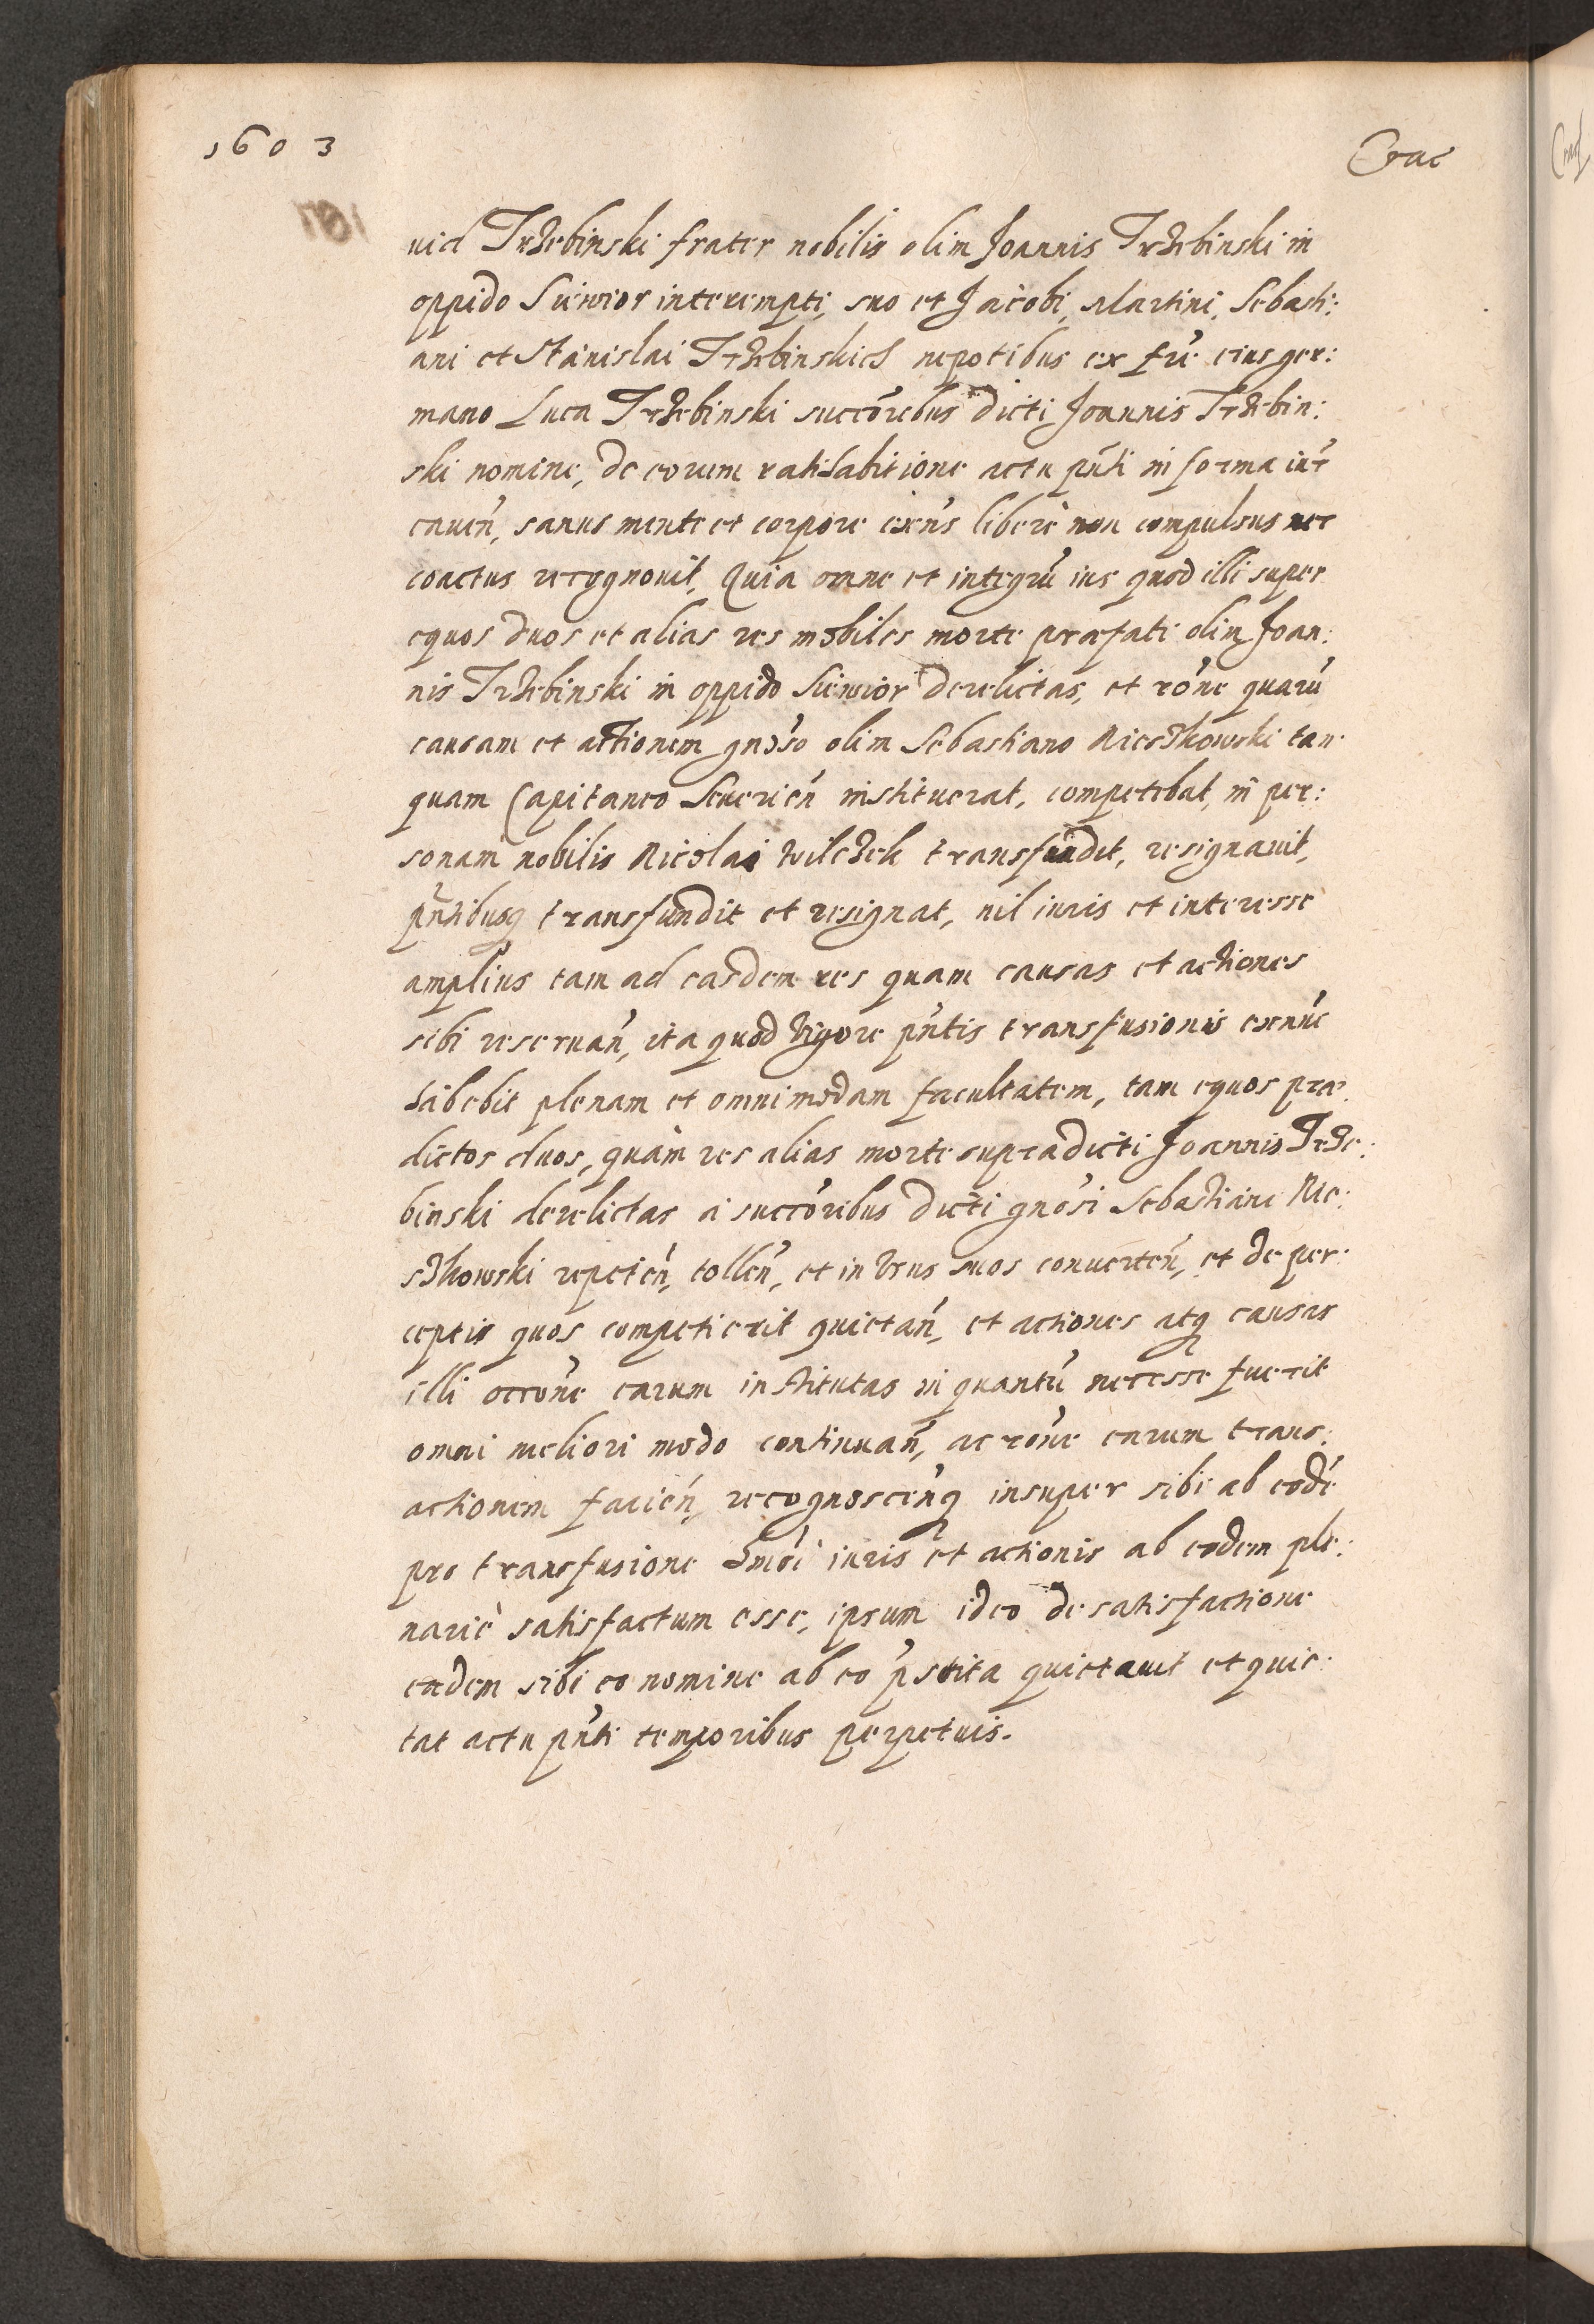 1603
Crac
uid Trzebinski frater nobilis olim Joannis Trzebinski in
oppido Siewior interempti, suo et Jacobi, Martini, Sebasti:
ani et Stanislai Trzebinskich nepotibus ex fr̃e eius ger:
mano Luca Trzebinski succõrebus dicti Joannis Trzebin:
ski nomine, de eorum ratihabitione actu pñti in forma iur̃
caueñ, sanus mente et corpore exeñs liberè non compulsus nec
coactus recognouit, Quia omne et integrũ ius quod illi super
equos duos et alias res mobiles morte præfati olim Joan:
nis Trzebinski in oppido Siewior derelictas, et rõne quarũ
causam et actionem gnõso olim Sebastiano Nieszkowski tan
quam Capitaneo Seuerieñ instituerat, competebat, in per:
sonam nobilis Nicolai Wilczek transfundit, resignauit,
pñtibusq transfundit et resignat, nil iuris et interesse
amplius tam ad easdem res quam causas et actiones
sibi reseruañ, ita quod vigore pñtis transfusionis exnũc
habebit plenam et omnimodam facultatem, tam equos præ
dictos duos, quàm res alias morte supradicti Joannis Trze:
binski derelictas à succõribus dicti gnõsi Sebastiani Nie:
szkowski repeteñ, tolleñ, et in vsus suos conuerteñ, et de per:
ceptis quos competierit quietañ, et actiones atq causas
illi occõne earum institutas in quantũ necesse fuerit
omni meliori modo continuañ, ac rõne earum trans:
actionem facieñ, recognosceñq insuper sibi ab eodẽ
pro transfusione hmõi iuris et actionis ab eodem ple:
nariè satisfactum esse, ipsum ideo de satisfactione
eadem sibi eo nomine ab eo p̃stita quietauit et quie:
tat actu pñti temporibus perpetuis.